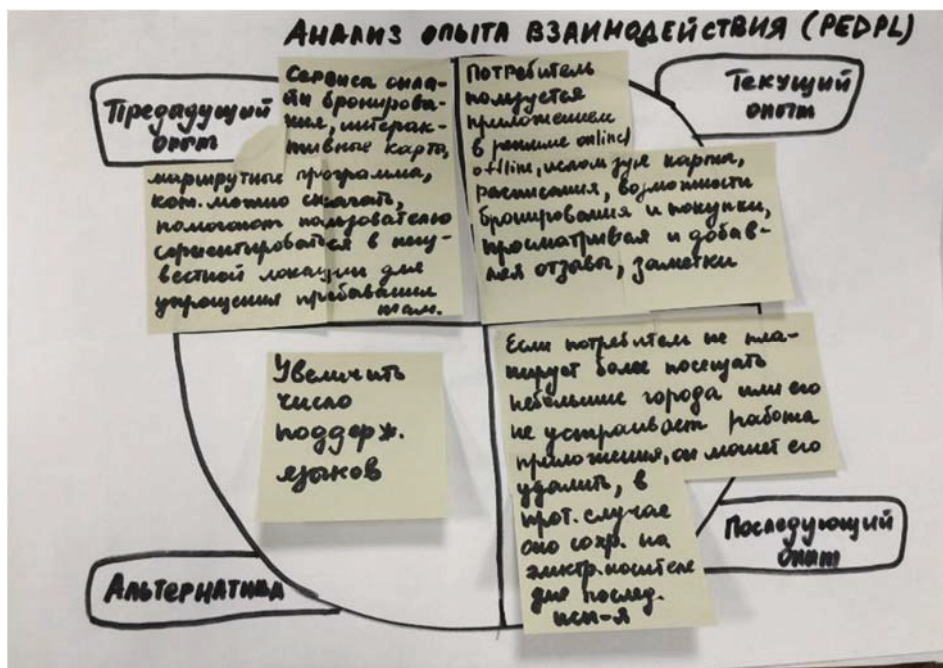 АНАЛИЗ ОПЫТА ВЗАИМОДЕЙСТВИЯ (PEDPL)
Предадущий
опыт
Сервиса онла-
ти бронирова-
ния, интерак-
тивные карта,
маршрутные программа,
кот. можно скачать,
помогают пользователю
сориентироваться в неиз-
вестной локации для
упрощения пребывания
там.
Текущий
опыт
Потребитель
пользуется
приложением
в режиме online/
offline, используя карта,
расписания, возможности
бронирования и покупки,
просматривая и добав-
ляя отзавы, заметки
Увеличить
число
поддерж.
языков
Альтернатива
Если потребитель не пла-
нирует более посещать
небольшие города или его
не устраивает работа
приложения, он может его
удалить, в
прот. случае
оно сохр. на
электр. носителе
для послед.
исп-я
Последующий
опыт